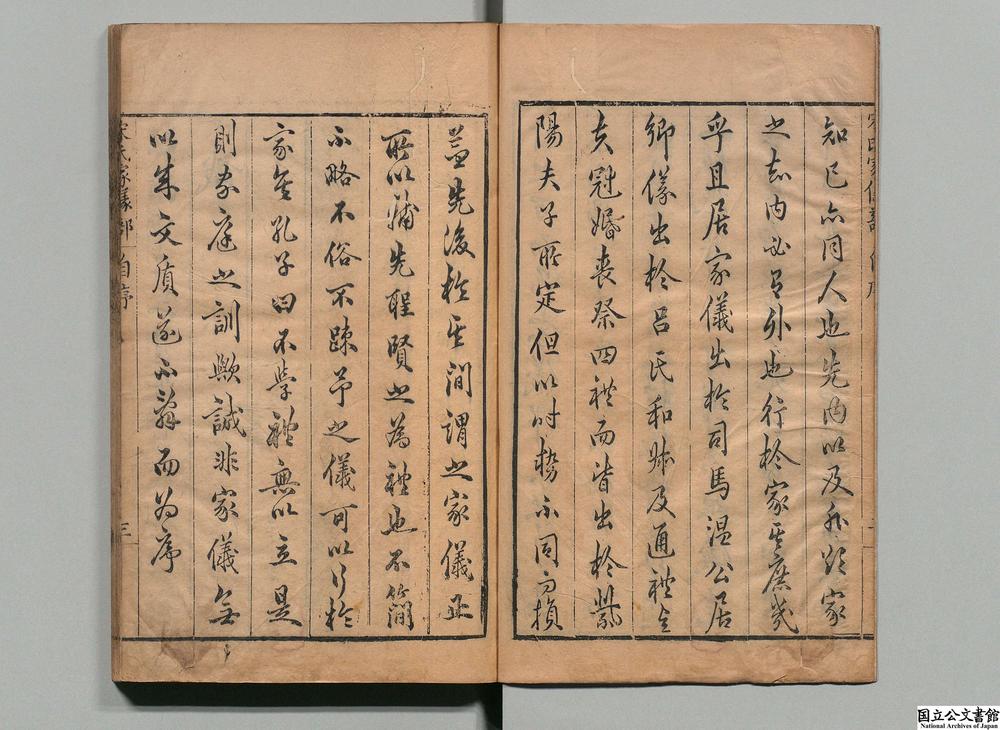 知已亦同人也先內以及外始家
之克內必自外也行於家其庶幾
乎且居家儀出於司馬溫公居
鄉儀出於呂氏和叔及通禮会
夫冠婚喪祭四禮而皆出於紫
陽夫子所定但以时势不同而損
益先後於其间謂之家儀正
所以補先聖賢之為禮也不簡
不略不俗不疎予之儀可以行於
家矣孔子曰不學禮無以立是
則家庭之訓歟誠非家儀無
以成文质遂不辭而为序
宋氏家儀部 自序
三
国立公文書館
National Archives of Japan